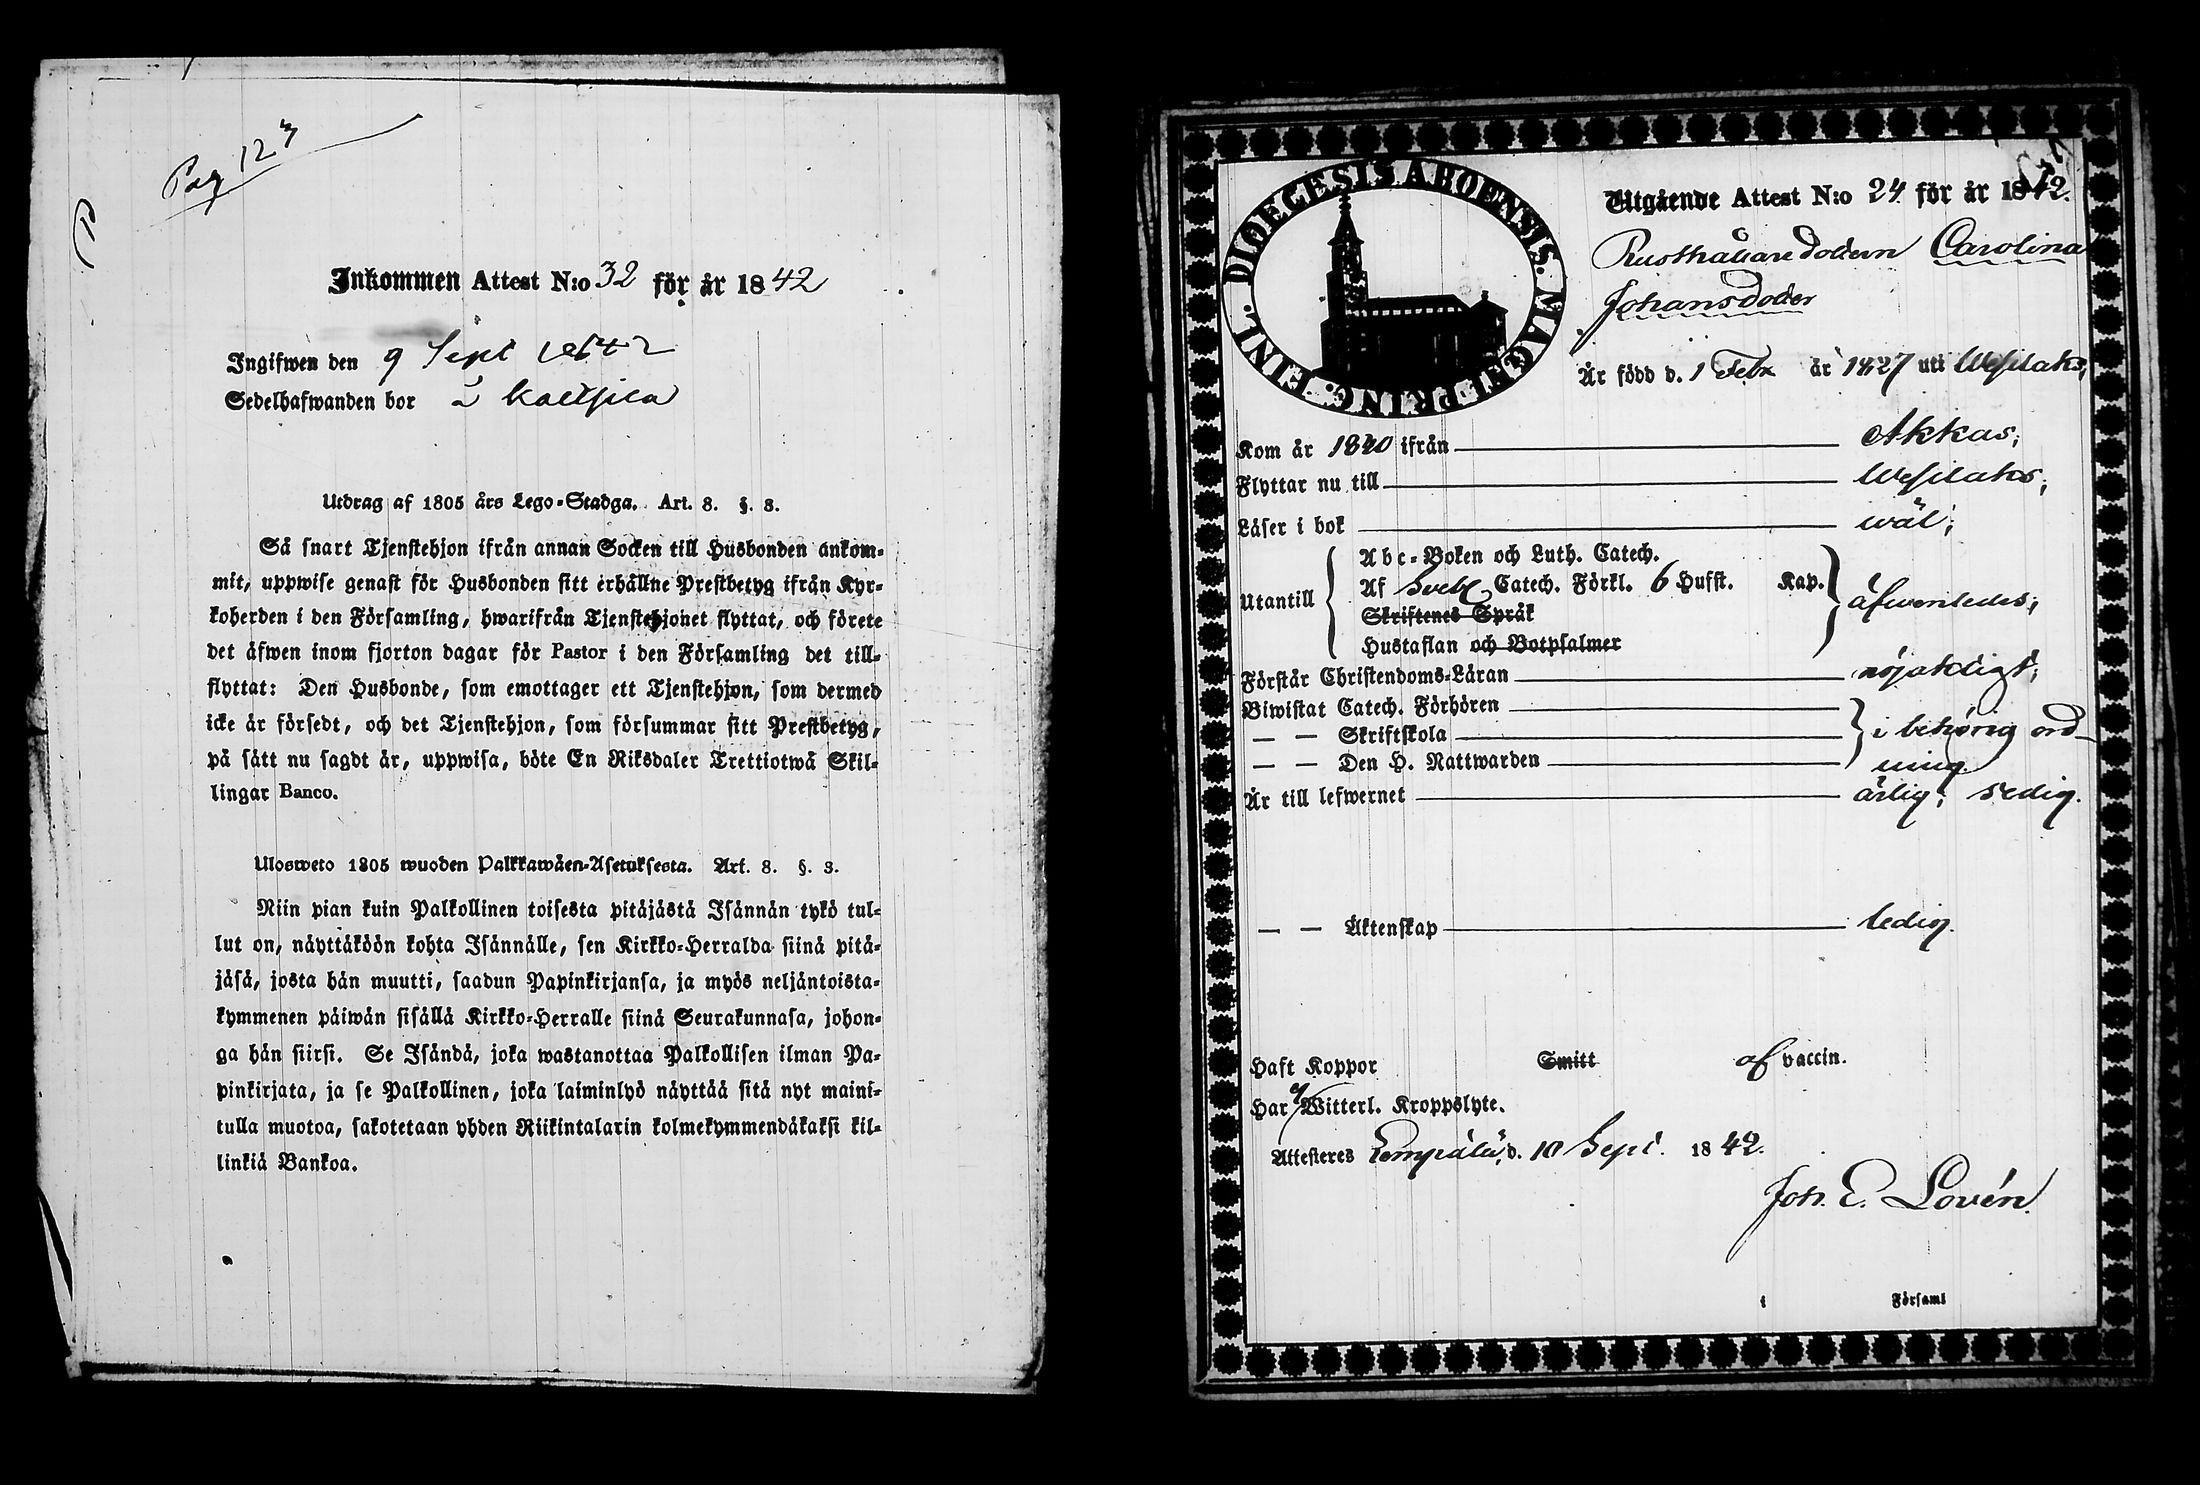 Pag 123
Inkommen Attest N:o 32 för år 1842
Ingifwen den 9 Sept 1842
Sedelhafwanden bor i
Utdrag af 1805 års Lego-Stadga. Art. 8. §. 3.
Så snart Tjenstehjon ifrån annan Socken till Husbonden ankom-
mit, uppwise genast för Husbonden sitt erhållne Prestbetyg ifrån Kyr-
koherden i den Församling, hwarifrån Tjenstehjonet flyttat, och förete
det äfwen inom fjorton dagar för Pastor i den Församling det till-
flyttat: Den Husbonde, som emottager ett Tjenstehjon, som dermed
icke är försedt, och det Tjenstehjon, som försummar sitt Prestbetyg,
på sätt nu sagdt är, uppwisa, böte En Riksdaler Trettiotwå Skil-
lingar Banco.
Ulosweto 1805 wuoden Palkkawäen-Asetuksesta. Art. 8. §. 3.
Niin pian kuin Palkollinen toisesta pitäjästä Isännän tykö tul-
lut on, näyttäköön kohta Isännälle, sen Kirkko-Herralda siinä pitä-
jäsä, josta hän muutti, saadun Papinkirjansa, ja myös neljäntoista-
kymmenen päiwän sisällä Kirkko-Herralle siinä Seurakunnasa, johon-
ga hän siirsi. Se Isändä, joka wastanottaa Palkollisen ilman Pa-
pinkirjata, ja se Palkollinen, joka laiminlyö näyttää sitä nyt maini-
tulla muotoa, sakotetaan yhden Riikintalarin kolmekymmendäkaksi kil-
linkiä Bankoa.
DIOECESIS ABOENSIS. MAGNI PRINC. FINL.
Utgående Attest N:o 24 för år 1842.
Rusthållare Dottern Carolina
Johansdotter
Är född d. 1 Febr år 1827 uti Wesilaks,
Kom år 1840 ifrån Akkas;
Flyttar nu till Wesilaks;
Läser i bok wäl;
Utantill Abc-Boken och Luth. Catech.
Af Sveb. Catech. Förkl. 6 Hufst. Kap. äfwenledes;
Skriftenes Språk
Hustaflan och Botpsalmer
Förstår Christendoms-Läran nöjaktligt;
Biwistat Catech. Förhören
— — Skriftskola i behörig ord-
— — Den H. Nattwarden ning.
Är till lefwernet ärlig; sedig.
— — Äktenskap ledig.
Haft Koppor Smitt af vaccin.
Har ej Witterl. Kroppslyte.
Attesteres Lempälä, d. 10 Sept. 1842.
Joh. E. Lovén.
i Församl